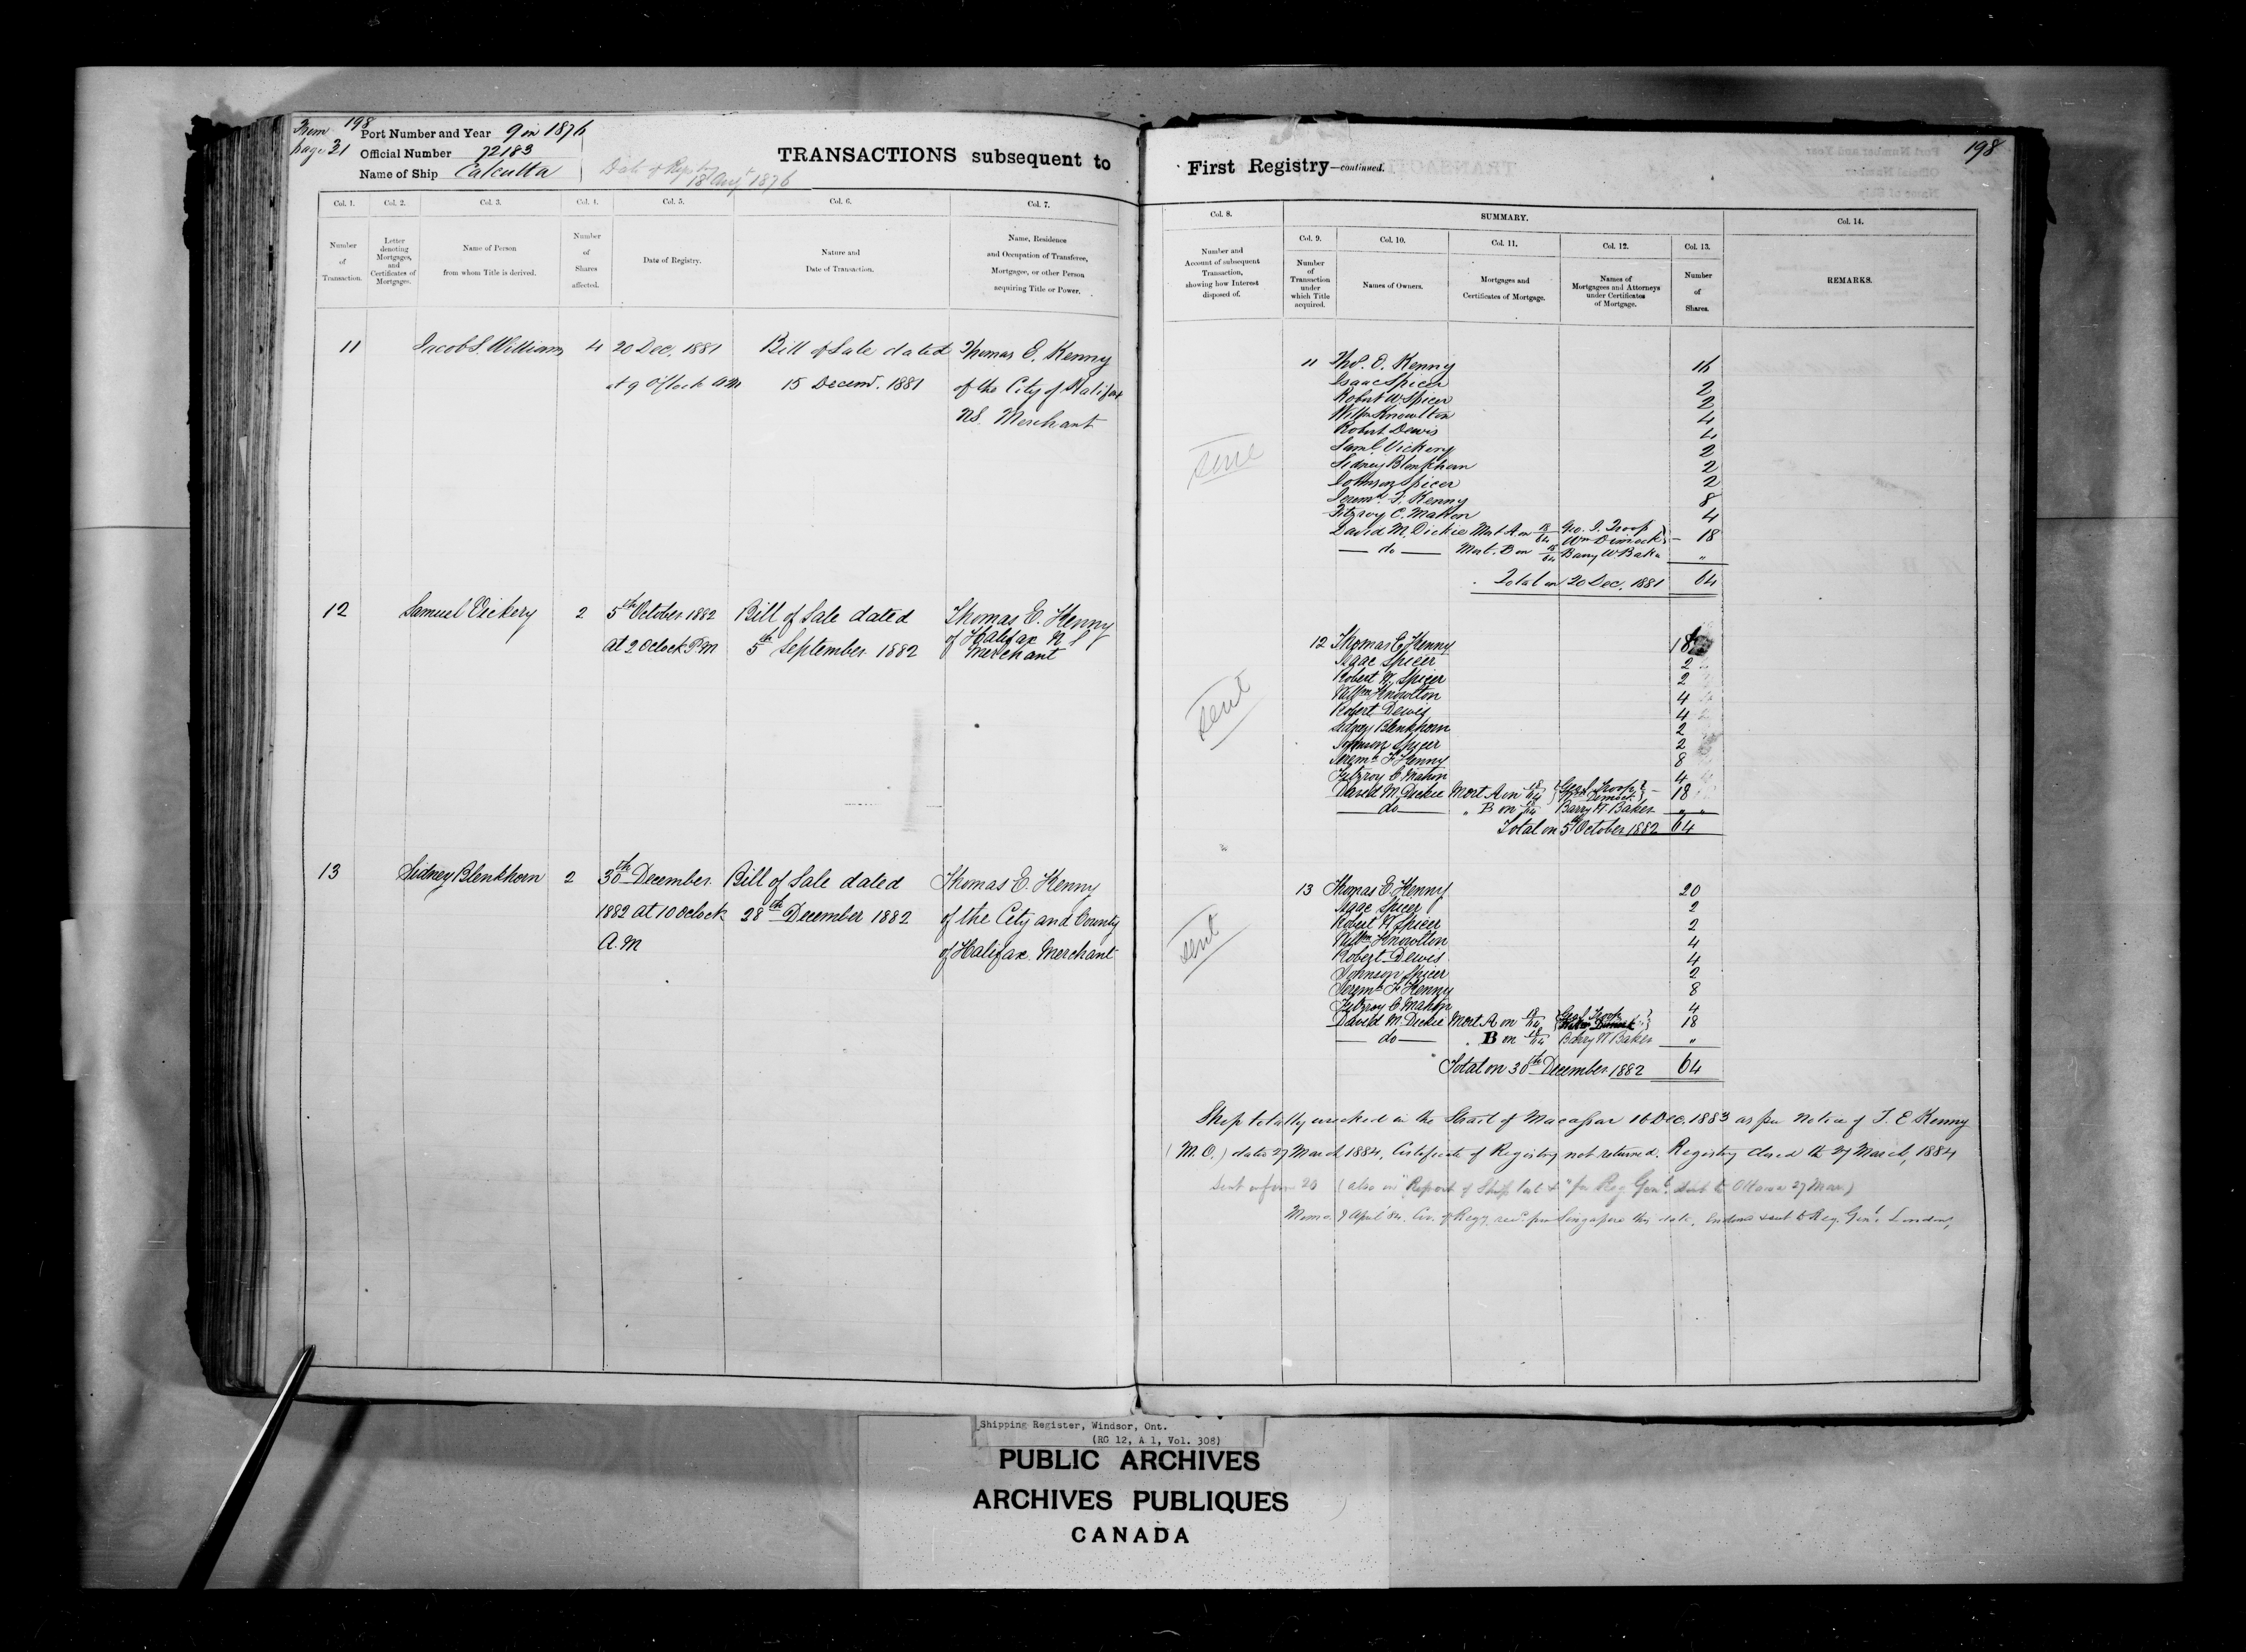 From 198
page 31
Port Number and Year 9 in 1876
Official Number 72183
Name of Ship Calcutta
Date of Registry
18 Augt 1876
TRANSACTIONS subsequent to
First Registry—continued.
198
Col. 1.
Col. 2.
Col. 3.
Col. 4.
Col. 5.
Col. 6.
Col. 7.
Number of Transaction.
Letter denoting Mortgages, and Certificates of Mortgages.
Name of Person from whom Title is derived.
Number of Shares affected.
Date of Registry.
Nature and Date of Transaction.
Name, Residence and Occupation of Transferee, Mortgagee, or other Person acquiring Title or Power.
Col. 8.
SUMMARY.
Col. 14.
Number and Account of subsequent Transaction, showing how Interest disposed of.
Col. 9.
Col. 10.
Col. 11.
Col. 12.
Col. 13.
Number of Transaction under which Title acquired.
Names of Owners.
Mortgages and Certificates of Mortgage.
Names of Mortgagees and Attorneys under Certificates of Mortgage.
Number of Shares.
REMARKS.
11 Jacob S. Williams 4 20 Dec. 1881 Bill of Sale dated Thomas E. Kenny
at 9 O'Clock AM 15 Decemr. 1881 of the City of Halifax
NS. Merchant
sent
11 Thos. E. Kenny 16
Isaac Spicer 2
Robert W. Spicer 2
Willm Knowlton 4
Robert Dewis 4
Saml. Vickery 2
Sidney Blenkhorn 2
Johnson Spicer 2
Jeremh. F. Kenny 8
Fitzroy C. Mahon 4
David M. Dickie Mort A on 18/64 Geo. J. Troop
Wm Dimock 18
do Mort. B on 18/64 Barry W Baker "
Total on 20 Dec. 1881 64
12 Samuel Vickery 2 5th October 1882 Bill of Sale dated Thomas E. Kenny
at 2 Oclock P.M 5th September 1882 of Halifax N S
Merchant
sent
12 Thomas E Kenny 18
Isaac Spicer 2
Robert W. Spicer 2
Willm Knowlton 4
Robert Dewis 4
Sidney Blenkhorn 2
Johnson Spicer 2
Jeremh F Kenny 8
Fitzroy C Mahon 4
David M. Dickie Mort A on 18/64 Geo J Troop
Dimock 18
do " B on 18/64 Barry W. Baker " "
Total on 5th October 1882 64
13 Sidney Blenkhorn 2 30th December Bill of Sale dated Thomas E. Kenny
1882 at 10 Oclock 28th December 1882 of the City and County
A.M of Halifax Merchant
sent
13 Thomas E. Kenny 20
Isaac Spicer 2
Robert W Spicer 2
Willm Knowlton 4
Robert Dewis 4
Johnson Spicer 2
Jeremh F Kenny 8
Fitzroy C Mahon 4
David M. Dickie Mort A on 18/64 Geo J Troop
Dimock 18
do " B on 18/64 Barry W Baker "
Total on 30th December 1882 64
Ship totally wrecked in the Strait of Macassar 16 Dec. 1883 as per Notice of T. E Kenny
(M.O.) dated 27 March 1884. Certificate of Registry not returned. Registry closed the 27 March, 1884
Sent on form 20 (also in "Report of Ship lost &" for Reg. Genl. sent to Ottawa 27 Mar.)
Memo. 9 April '84. Cer. of Regy. recd. from Singapore this date, endorsed & sent to Reg. Genl. London,
Shipping Register, Windsor, Ont.
(RG 12, A 1, Vol. 308)
PUBLIC ARCHIVES
ARCHIVES PUBLIQUES
CANADA